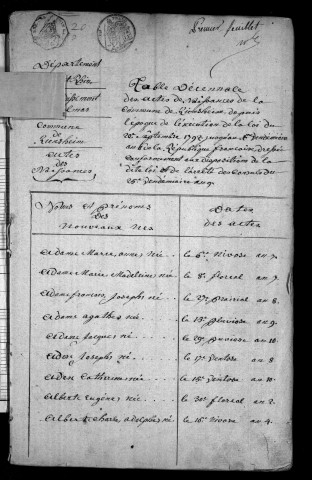 Premier feuillet
Département
Table Décennale
des actes de Naissances de la
Commune de Rixheim, depuis
l'époque de l'exécution de la loi du
20 septembre 1792 jusqu'au 1er Vendémiaire
an de la République française, dressée
conformément aux dispositions de la
dite loi et de l'arrêté des Consuls du
25 Vendémiaire an 9
Commune
de Rixheim
actes
des
Naissances
Noms et prénoms
des
Nouveaux Nés
Dates
des actes
adam Marie anne né le 6e Nivose an
adam Marie Madeleine né le 8e floreal an 7
adam françois Josephe né le prairial an 8
adam agathe né le 13e pluviose an 9
adam Jacques né le 29e pluviose an 10
aden Josephe né le 17e Ventose an 8
aden Catherine né le 18e Ventose an 10
albert Eugène né le 30e floreal an 2
albert Charle adolphe né le 16e Nivose an 4